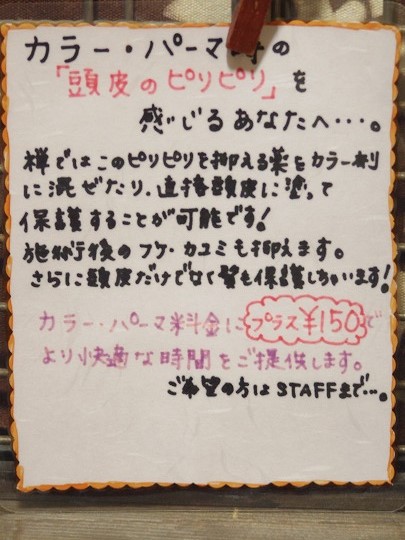 カラー・パーマ時の
「頭皮のピリピリ」を
感じるあなたへ・・・。
禅ではこのピリピリを抑える薬をカラー剤
に混ぜたり、直接頭皮に塗って
保護することが可能です!
施術後のフケ・カユミも抑えます。
さらに頭皮だけでなく髪も保護しちゃいます!
カラー・パーマ料金にプラス¥150で
より快適な時間をご提供します。
ご希望の方はSTAFFまで…。